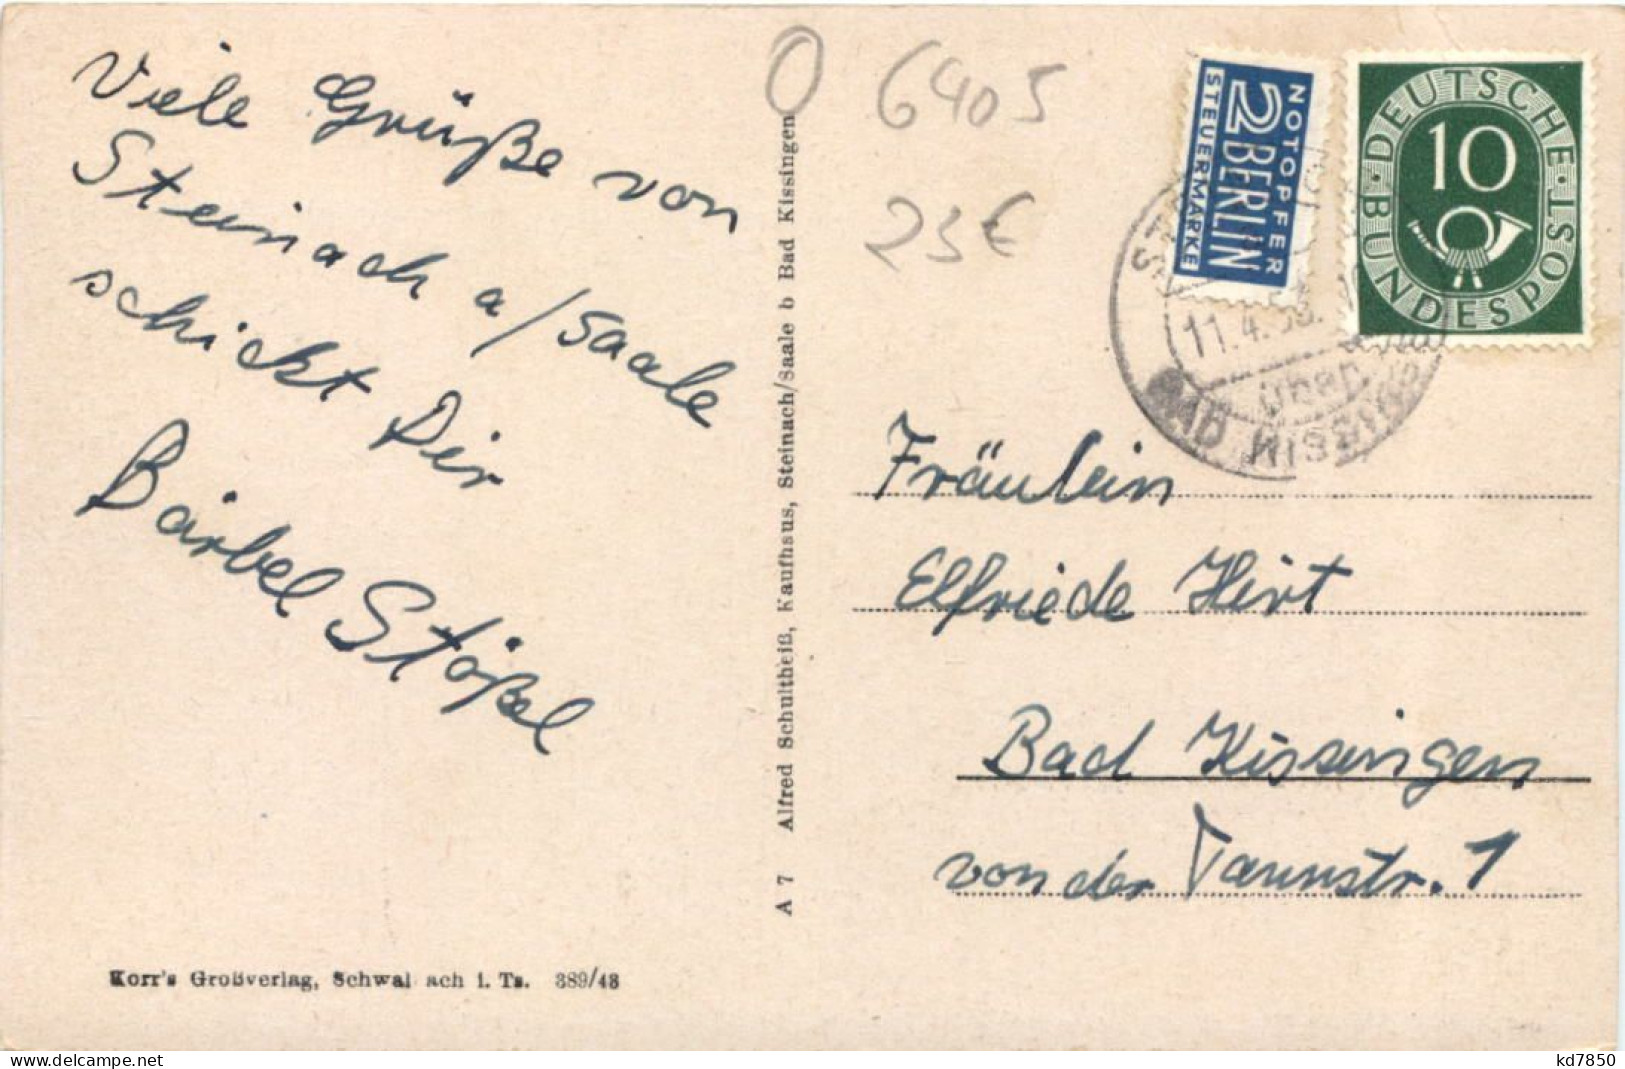 Viele Grüße von
Steinach a/Saale
schickt Dir
Bärbel Stößel
Korr's Großverlag, Schwal ach i. Ts. 389/43
A 7 Alfred Schultheiß, Kaufhsus, Steinach/Saale b Bad Kissingen
6405
23€
NOTOPFER
2 BERLIN
STEUERMARKE
DEUTSCHE BUNDESPOST
10
11.4.
über
BAD KISSINGEN
Fräulein
Elfriede Hirt
Bad Kissingen
von der Tannstr. 1
www.delcampe.net
kd7850